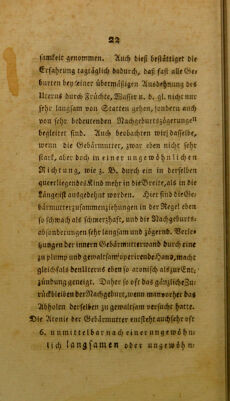 22
samkeit genommen. Auch dieß bestättiget die
Erfahrung tagtäglich dadurch, daß fast alle Ge-
burten bey einer übermäßigen Ausdehnung des
Uterus durch Früchte, Wasser u. d. gl. nicht nur
sehr langsam von Statten gehen, sondern auch
von sehr bedeutenden Nachgeburtszögerungen
begleitet sind. Auch beobachten wir dasselbe,
wenn die Gebärmutter, zwar eben nicht sehr
stark, aber doch in einer ungewöhnlichen
Richtung, wie z. B. durch ein in derselben
queerliegendes Kind mehr in die Breite, als in die
Länge ist ausgedehnt worden. Hier sind die Ge-
bärmutterzusammenziehungen in der Regel eben
so schwach als schmerzhaft, und die Nachgeburts-
absonderungen sehr langsam und zögernd. Verle-
tzungen der innern Gebärmutterwand durch eine
zu plump und gewaltsam operirende Hand, macht
gleichfalls den Uterus eben so atonisch als zur Ent-
zündung geneigt. Daher so oft das gänzliche Zu-
rückbleiben der Nachgeburt, wenn man vorher das
Abholen derselben zu gewaltsam versucht hatte.
Die Atonie der Gebärmutter entsteht auch sehr oft
6. unmittelbar nach einer ungewöhn-
lich langsamen oder ungewöhn-